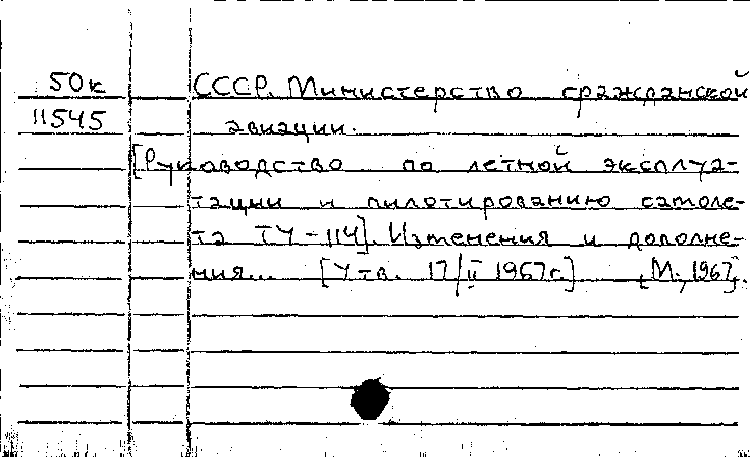 50к СССР. Министерство гражданской
11545 авиации.
[Руководство по летной эксплуа-
тации и пилотированию самоле-
та ТУ-114]. Изменения и дополне-
ния... [Утв. 17/II 1967г.] [М., 1967].